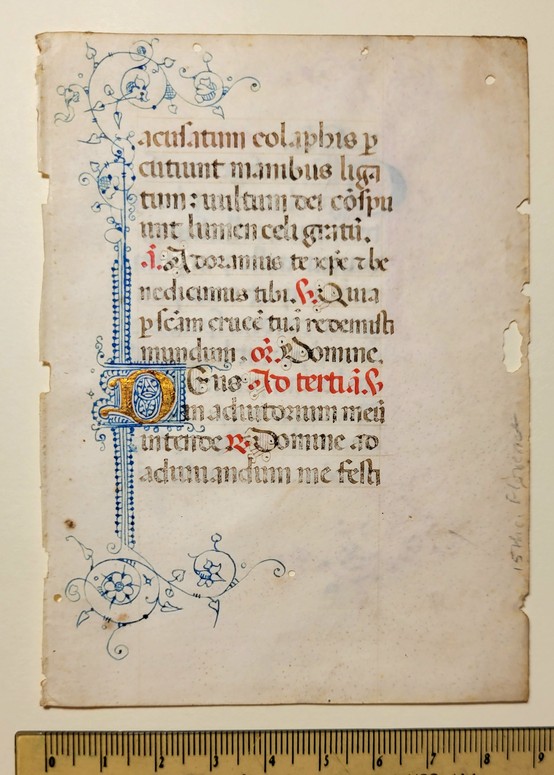 acusatum colaphis p̱
cutiunt manibus liga
tum: uultum dei cõspu
unt lumen celi gratũ.
ĩ. Adoramus te xp̃e ⁊ be
nedicimus tibi. ℣ Quia
p̱ scãm crucẽ tuã redemisti
mundum. or̃. Domine.
DEus Ad tertiã. ℣
in adiutorium meũ
intende ℟ Domine ad
adiuuandum me festi
0 1 2 3 4 5 6 7 8 9